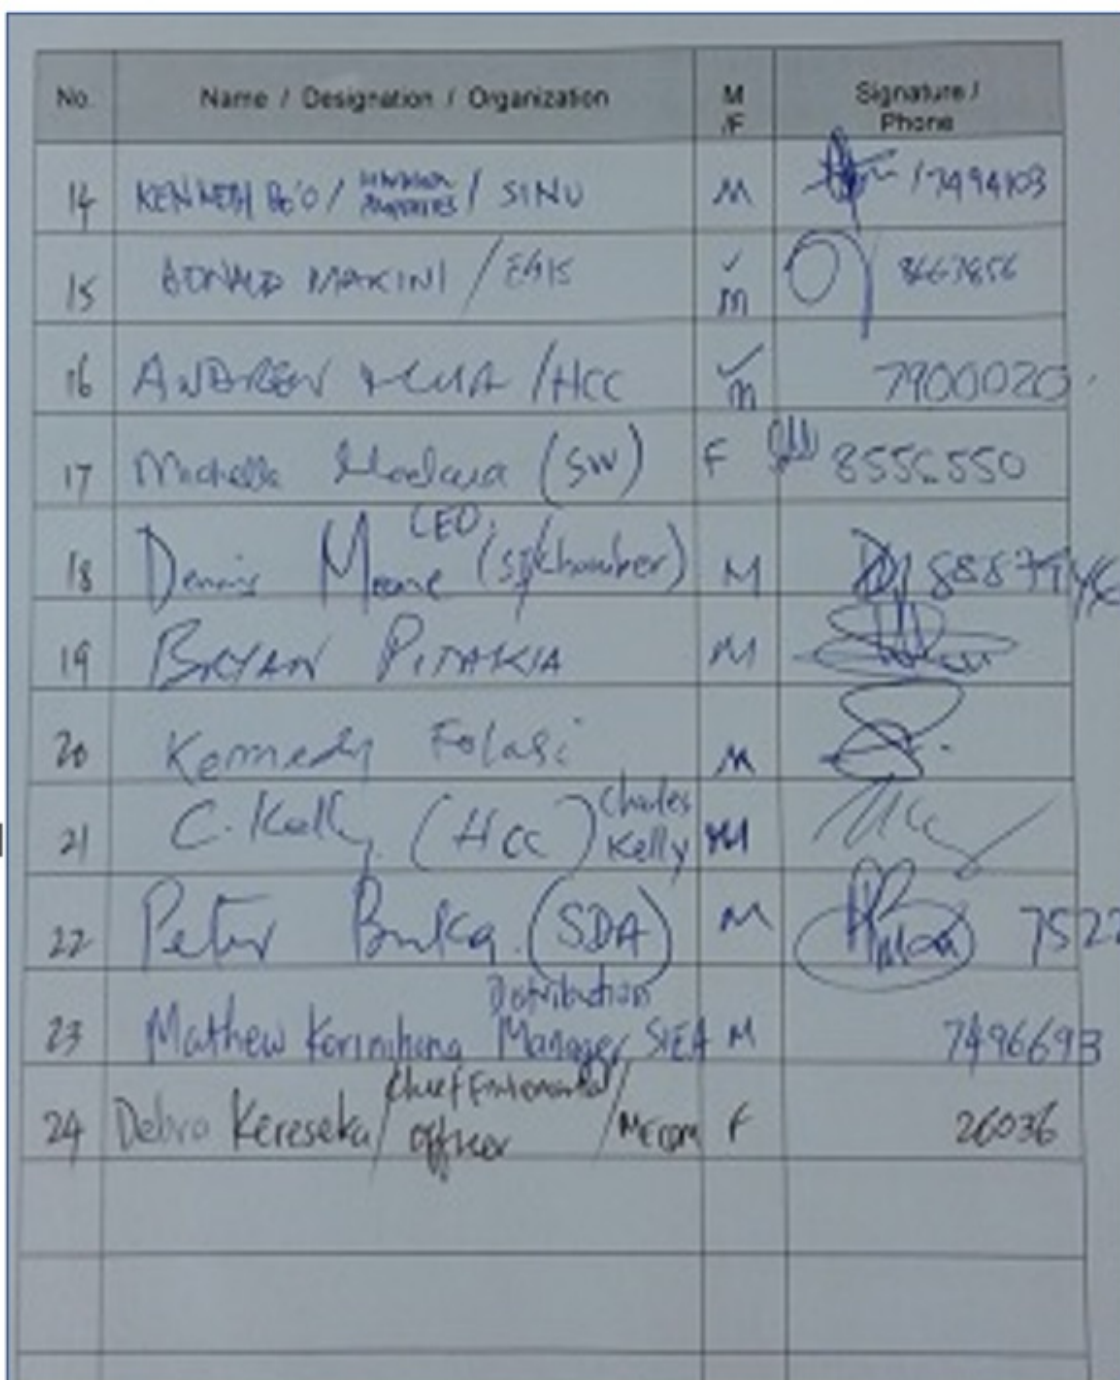 No. Name / Designation / Organization M /F Signature / Phone
14 KENNETH BO'O / / SINU M /7494103
15 DONALD MAKINI / EGIS M 8663856
16 ANDREW / HCC M 7900020
17 Michelle (SW) F 8556550
18 Dennis Meone CEO (SI Chamber) M
19 BRYAN PITAKIA M
20 Kennedy Folasi M
21 C. Kelly (HCC) Charles Kelly M
22 Peter (SDA) M 7522
23 Mathew Korinihona Distribution Manager SIEA M 7496693
24 Debra Kereseka / Chief Environmental Officer / MECDM F 26036